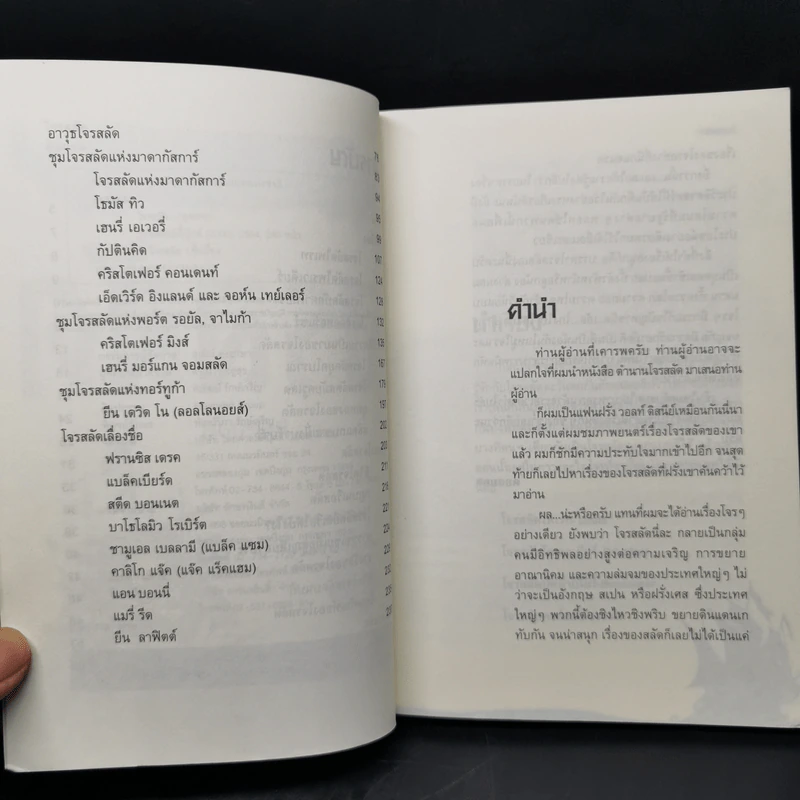 อาวุธโจรสลัด
ชุมโจรสลัดแห่งมาดากัสการ์ 78
โจรสลัดแห่งมาดากัสการ์
โธมัส ทิว 94
เฮนรี่ เอเวอรี่
กัปตินคิด 99
คริสโตเฟอร์ คอนเดนท์ 107
เอ็ดเวิร์ด อิงแลนด์ และ จอห์น เทย์เลอร์ 124
ชุมโจรสลัดแห่งพอร์ต รอยัล, จาไมก้า
คริสโตเฟอร์ มิงส์
เฮนรี่ มอร์แกน จอมสลัด
ชุมโจรสลัดแห่งทอร์ทูก้า
ยีน เดวิด โน (ลอลโลนอยส์)
โจรสลัดเลื่องชื่อ
ฟรานซิส เดรค
แบล็คเบียร์ด
สตีด บอนเนต
บาโธโลมิว โรเบิร์ต
ซามูเอล เบลลามี (แบล็ค แซม)
คาลิโก แจ๊ค (แจ๊ค แร็คแฮม)
แอน บอนนี่
แมรี่ รีด
ยีน ลาฟิตต์
คำนำ
ท่านผู้อ่านที่เคารพครับ ท่านผู้อ่านอาจจะ
แปลกใจที่ผมนำหนังสือ ตำนานโจรสลัด มาเสนอท่าน
ผู้อ่าน
ก็ผมเป็นแฟนฝรั่ง วอลท์ ดิสนีย์เหมือนกันนี่นา
และก็ตั้งแต่ผมชมภาพยนตร์เรื่องโจรสลัดของเขา
แล้ว ผมก็ชักมีความประทับใจมากเข้าไปอีก จนสุด
ท้ายก็เลยไปหาเรื่องของโจรสลัดที่ฝรั่งเขาค้นคว้าไว้
มาอ่าน
ผล...น่ะหรือครับ แทนที่ผมจะได้อ่านเรื่องโจรๆ
อย่างเดียว ยังพบว่า โจรสลัดนี่ละ กลายเป็นกลุ่ม
คนมีอิทธิพลอย่างสูงต่อความเจริญ การขยาย
อาณานิคม และความล่มจมของประเทศใหญ่ๆ ไม่
ว่าจะเป็นอังกฤษ สเปน หรือฝรั่งเศส ซึ่งประเทศ
ใหญ่ๆ พวกนี้ต้องชิงไหวชิงพริบ ขยายดินแดนเก
ทับกัน จนน่าสนุก เรื่องของสลัดก็เลยไม่ได้เป็นแค่